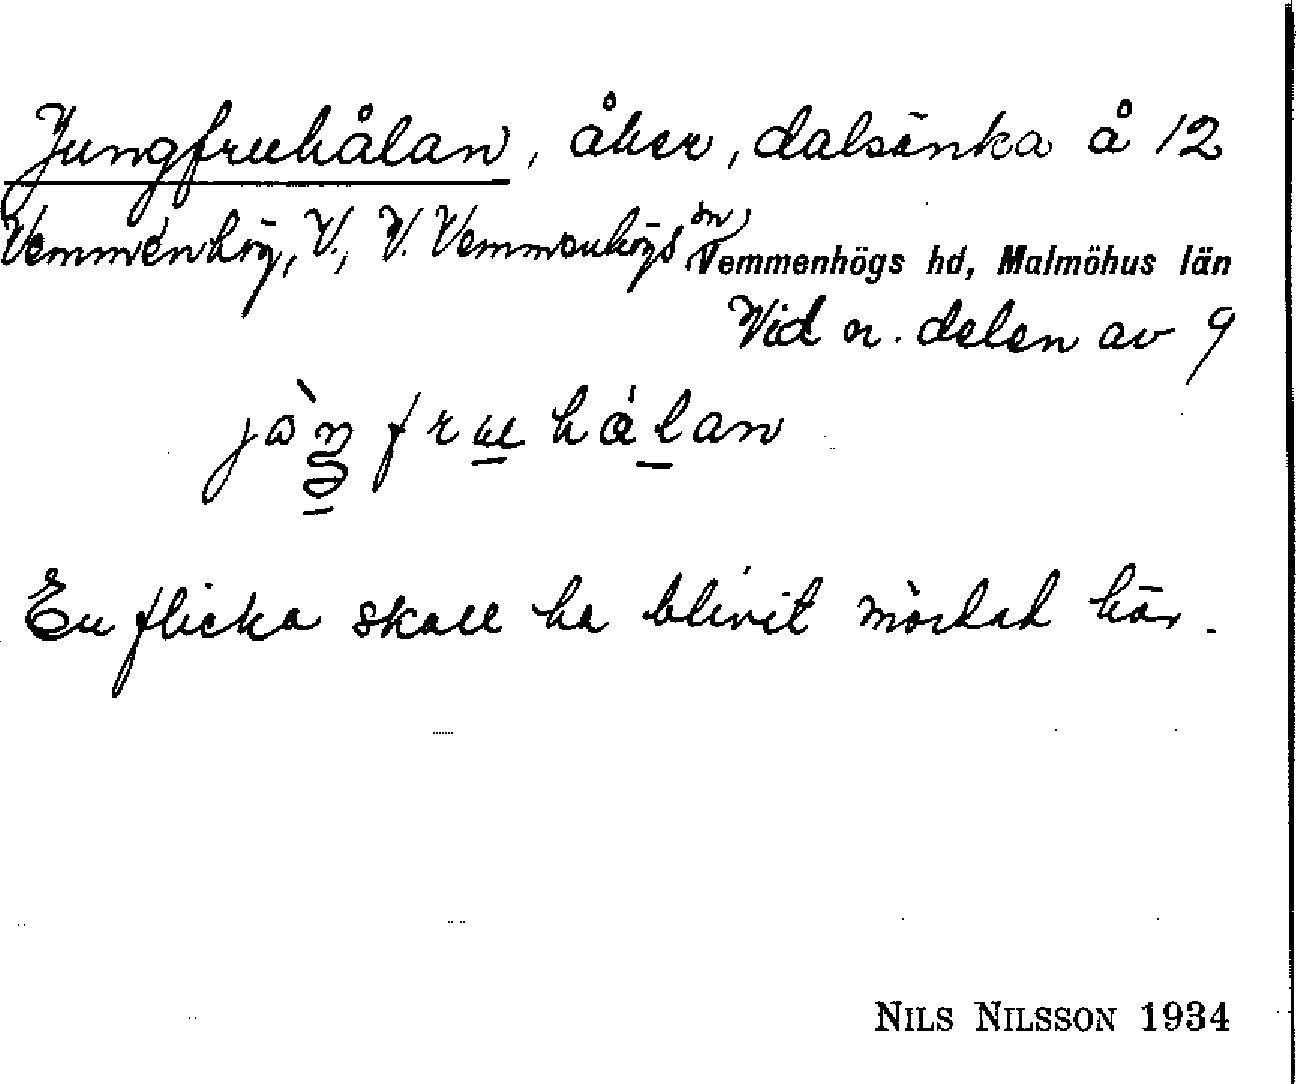 Jungfruhålan, åker, dalsänka å 12
Vemmenhög, V., V. Vemmenhögs sn, Vemmenhögs hd, Malmöhus län
Vid n. delen av 9
fru hålan
En flicka skall ha blivit mördad här.
NILS NILSSON 1934